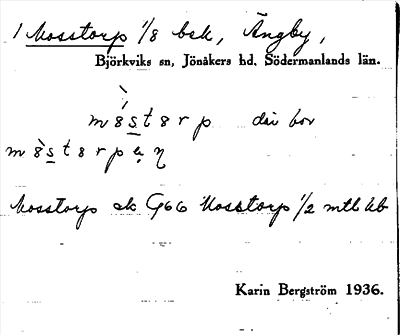 1 Mosstorp 1/8 bsk, Ängby,
Björkviks sn, Jönåkers hd. Södermanlands län.
där bor
Mosstorp ek G66 Mosstorp 1/2 mtl kb
Karin Bergström 1936.